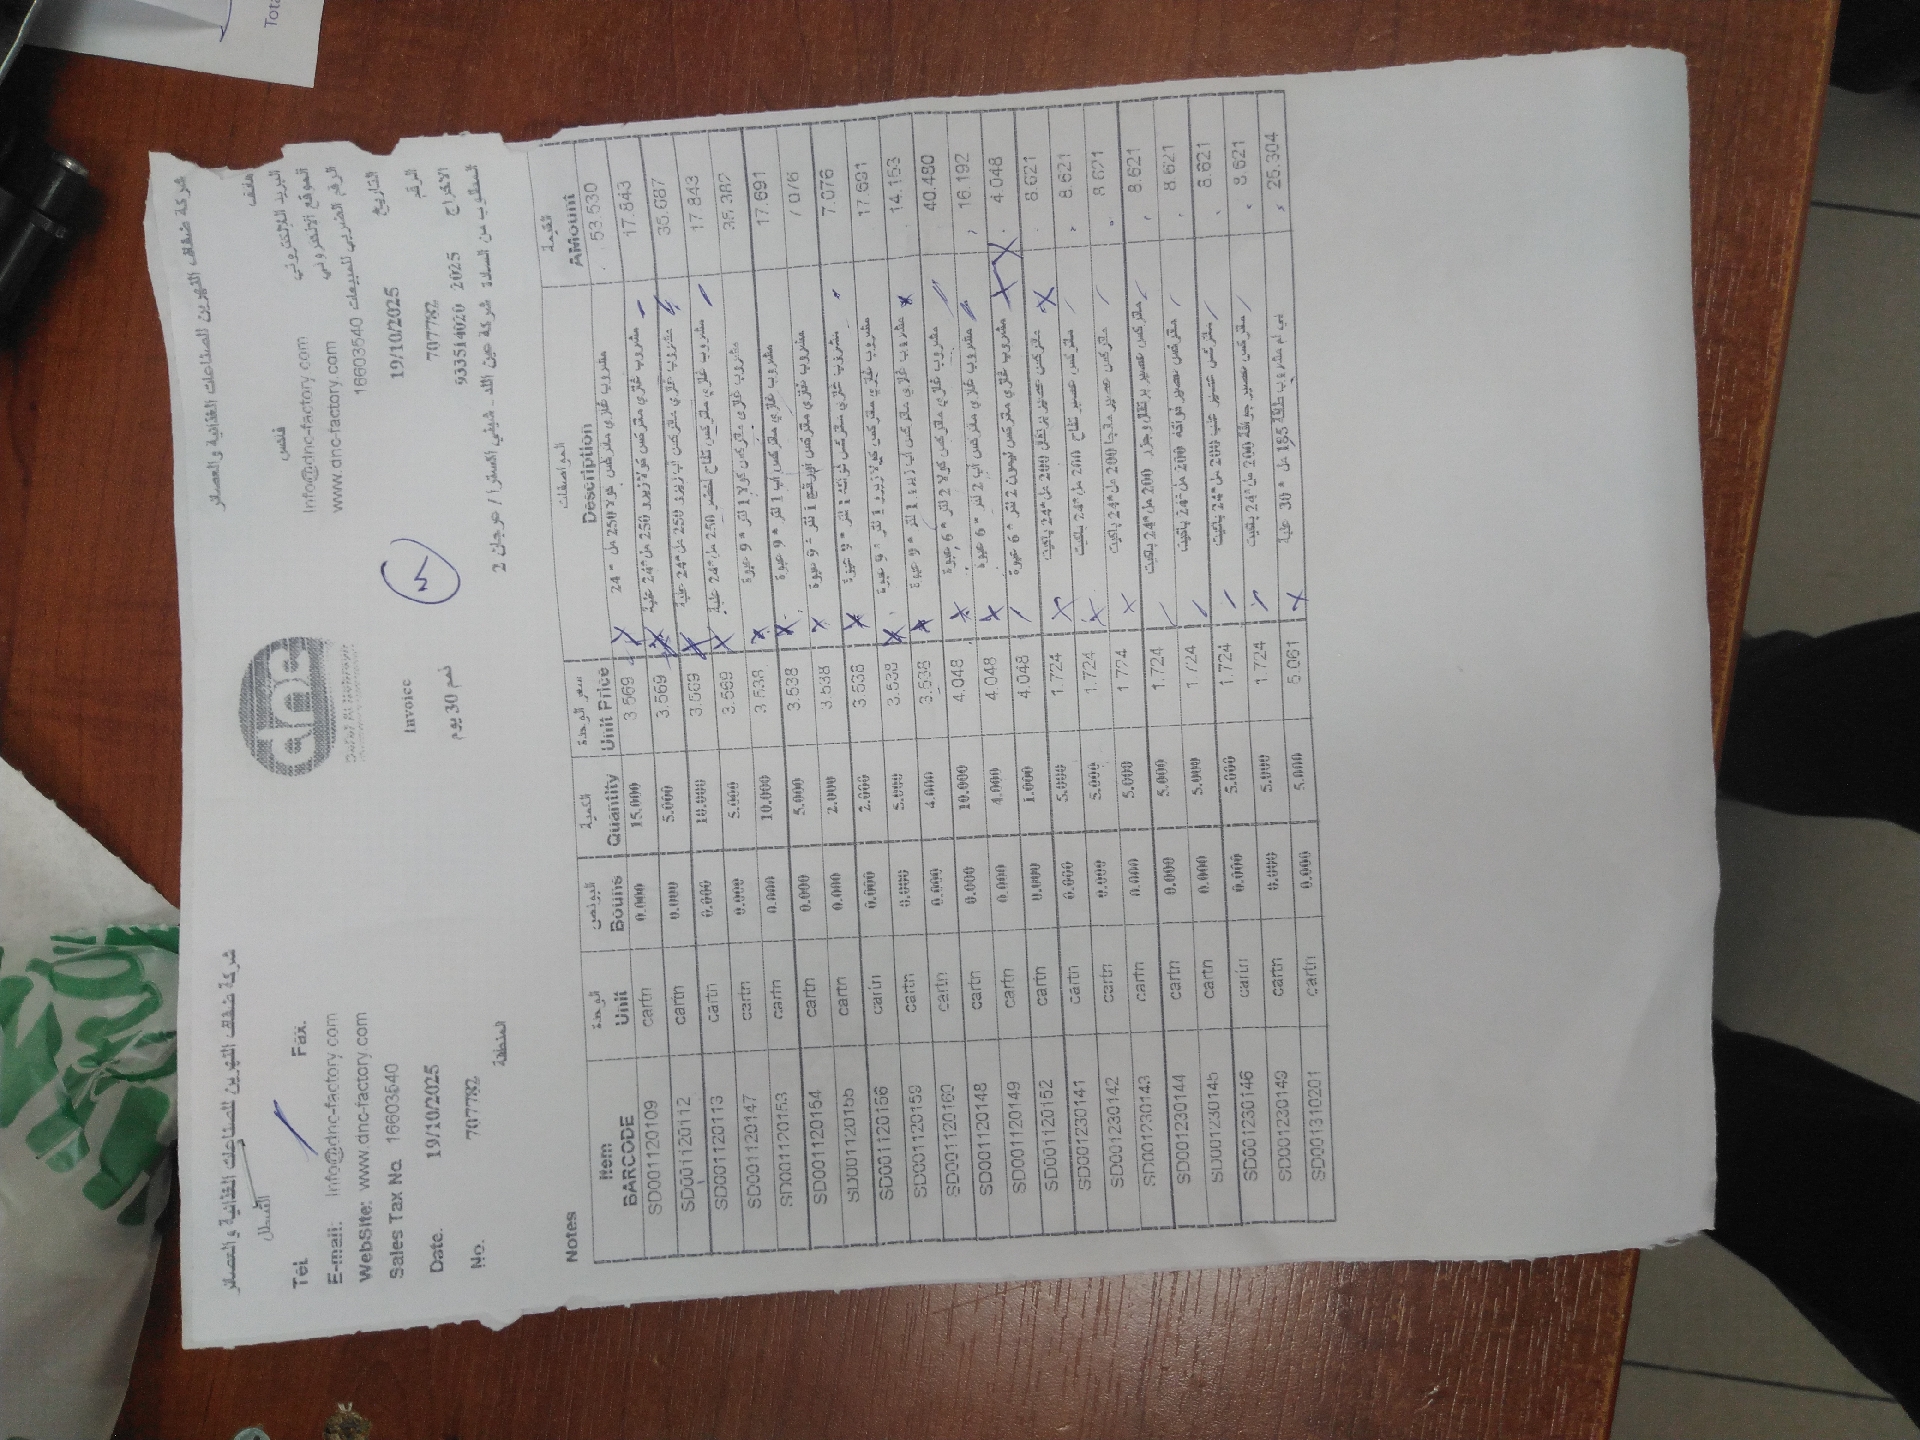 شركة ضفاف النهرين للصناعات الغذائية والعصائر
شركة ضفاف النهرين للصناعات الغذائية والعصائر
dnc
Tel. Fax. فاكس هاتف
E-mail: Info@dnc-factory.com Info@dnc-factory.com البريد الالكتروني
WebSite: www.dnc-factory.com www.dnc-factory.com الموقع الالكتروني
Sales Tax No. 16603540 16603540 الرقم الضريبي للمبيعات
Date. 19/10/2025 Invoice 19/10/2025 التاريخ
No. 707782 ذمم 30 يوم 707782 الرقم
المنطقة 933514020 2025 الافراج
المطلوب من السادة شركة عين الله - شيفي اكسترا / مرجان 2
Notes
Item الوحدة البونص الكمية سعر الوحدة المواصفات القيمة
BARCODE Unit Bouns Quantity Unit Price Description AMount
SD001120109 cartn 0.000 15.000 3.569 مشروب غازي مفركس كولا 250 مل * 24 53.530
SD001120112 cartn 0.000 5.000 3.569 مشروب غازي مفركس كولا زيرو 250 مل *24 علبة 17.843
SD001120113 cartn 0.000 10.000 3.569 مشروب غازي مفركس اب زيرو 250 مل *24 علبة 35.687
SD001120147 cartn 0.000 5.000 3.569 مشروب غازي مفركس تفاح اخضر 250 مل *24 علبة 17.843
SD001120153 cartn 0.000 10.000 3.538 مشروب غازي مفركس كولا 1 لتر * 9 عبوة 35.382
SD001120154 cartn 0.000 5.000 3.538 مشروب غازي مفركس اب 1 لتر * 9 عبوة 17.691
SD001120155 cartn 0.000 2.000 3.538 مشروب غازي مفركس اورنج 1 لتر * 9 عبوة 7.076
SD001120156 cartn 0.000 2.000 3.538 مشروب غازي مفركس فواكه 1 لتر * 9 عبوة 7.076
SD001120159 cartn 0.000 5.000 3.538 مشروب غازي مفركس كولا زيرو 1 لتر * 9 عبوة 17.691
SD001120160 cartn 0.000 4.000 3.538 مشروب غازي مفركس اب زيرو 1 لتر * 9 عبوة 14.153
SD001120148 cartn 0.000 10.000 4.048 مشروب غازي مفركس كولا 2 لتر * 6 عبوة 40.480
SD001120149 cartn 0.000 4.000 4.048 مشروب غازي مفركس اب 2 لتر * 6 عبوة 16.192
SD001120152 cartn 0.000 1.000 4.048 مشروب غازي مفركس ليمون 2 لتر * 6 عبوة 4.048
SD001230141 cartn 0.000 5.000 1.724 مفركس عصير برتقال 200 مل *24 باكيت 8.621
SD001230142 cartn 0.000 5.000 1.724 مفركس عصير تفاح 200 مل *24 باكيت 8.621
SD001230143 cartn 0.000 5.000 1.724 مفركس عصير مانجا 200 مل *24 باكيت 8.621
SD001230144 cartn 0.000 5.000 1.724 مفركس عصير برتقال وجزر 200 مل *24 باكيت 8.621
SD001230145 cartn 0.000 5.000 1.724 مفركس عصير فواكه 200 مل *24 باكيت 8.621
SD001230146 cartn 0.000 5.000 1.724 مفركس عصير عنب 200 مل *24 باكيت 8.621
SD001230149 cartn 0.000 5.000 1.724 مفركس عصير جوافة 200 مل *24 باكيت 8.621
SD001310201 cartn 0.000 5.000 5.061 بي ام مشروب طاقة 185 مل * 30 علبة 25.304